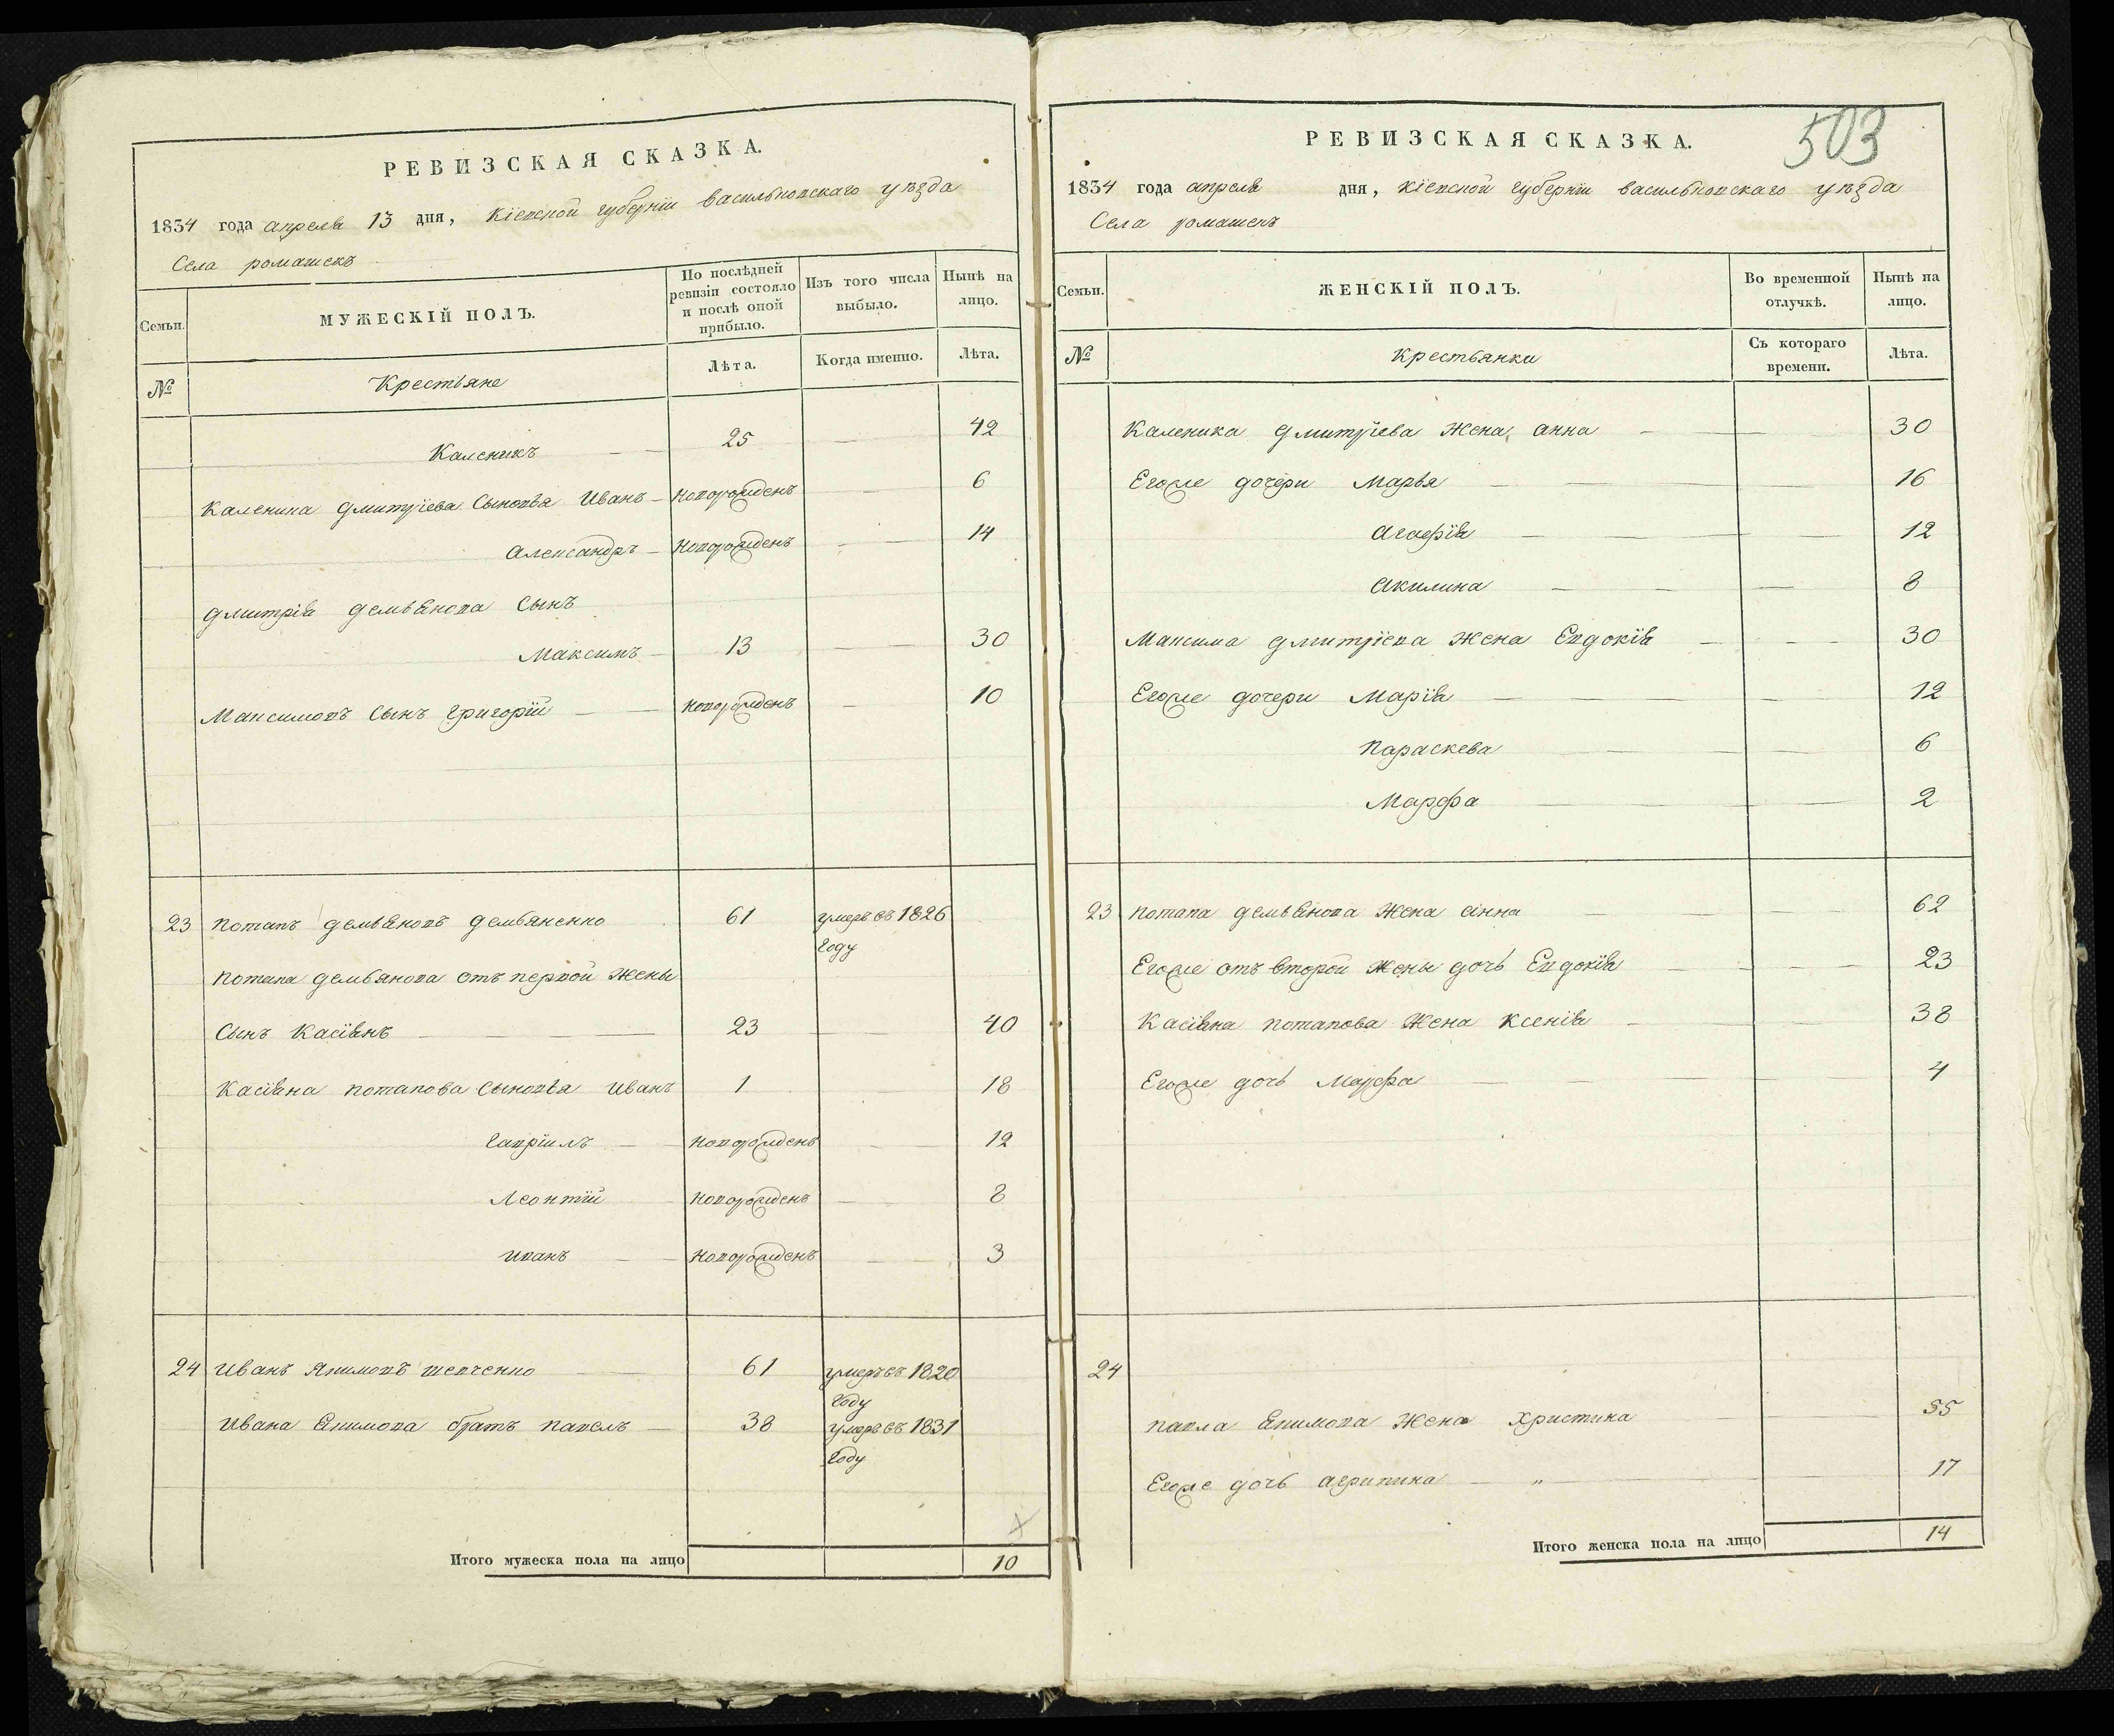 РЕВИЗСКАЯ СКАЗКА.
1834 года апреля 13 дня, Кіевской губерніи васильковскаго уѣзда
Села ромашекъ
Семьи.
МУЖЕСКІЙ ПОЛЪ.
По послѣдней ревизіи состояло и послѣ оной прибыло.
Изъ того числа выбыло.
Нынѣ на лицо.
№
Крестьяне
Лѣта.
Когда именно.
Лѣта.
Каленикъ 25 42
Каленика Дмитріева Сыновья Иванъ новорожденъ 6
Александръ новорожденъ 14
Дмитрія демьянова Сынъ
Максимъ 13 30
Максимовъ Сынъ Григорій новорожденъ 10
23 Потапъ демьяновъ демьяненко 61 умеръ въ 1826
году
Потапа демьянова отъ первой жены
Сынъ Касіянъ 23 40
Касіяна потапова Сыновья Иванъ 1 18
Гавріилъ новорожденъ 12
Леонтій новорожденъ 8
Иванъ новорожденъ 3
24 Иванъ Якимовъ шевченко 61 умеръ въ 1820
году
Ивана Якимова братъ павелъ 38 умеръ въ 1831
году
Итого мужеска пола на лицо 10
503
РЕВИЗСКАЯ СКАЗКА.
1834 года апреля дня, Кіевской губерніи васильковскаго уѣзда
Села ромашекъ
Семьи.
ЖЕНСКІЙ ПОЛЪ.
Во временной отлучкѣ.
Нынѣ на лицо.
№
Крестьянки
Съ котораго времени.
Лѣта.
Каленика Дмитріева жена анна 30
Егоже дочери Марья 16
Агафія 12
Акилина 8
Максима Дмитріева жена Евдокія 30
Егоже дочери Марія 12
Параскева 6
Марфа 2
23 Потапа демьянова жена анна 62
Егоже отъ второй жены дочь Евдокія 23
Касіяна потапова жена Ксенія 38
Егоже дочь Марфа 4
24
павла Якимова жена Христина 55
Егоже дочь агрипина „ 17
Итого женска пола на лицо 14